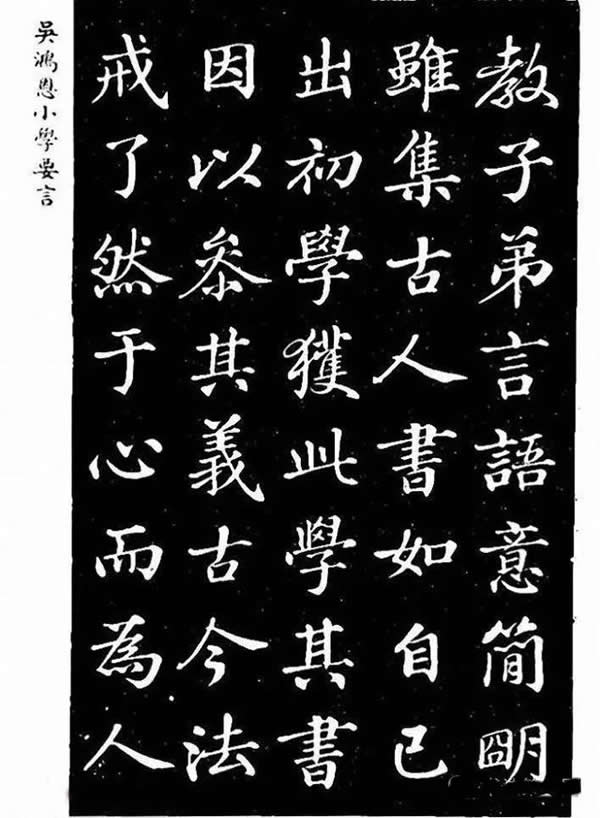 教子弟言語意簡朙
雖集古人書如自己
出初學獲此學其書
因以叅其義古今法
戒了然于心而為人
吳鴻恩小學要言